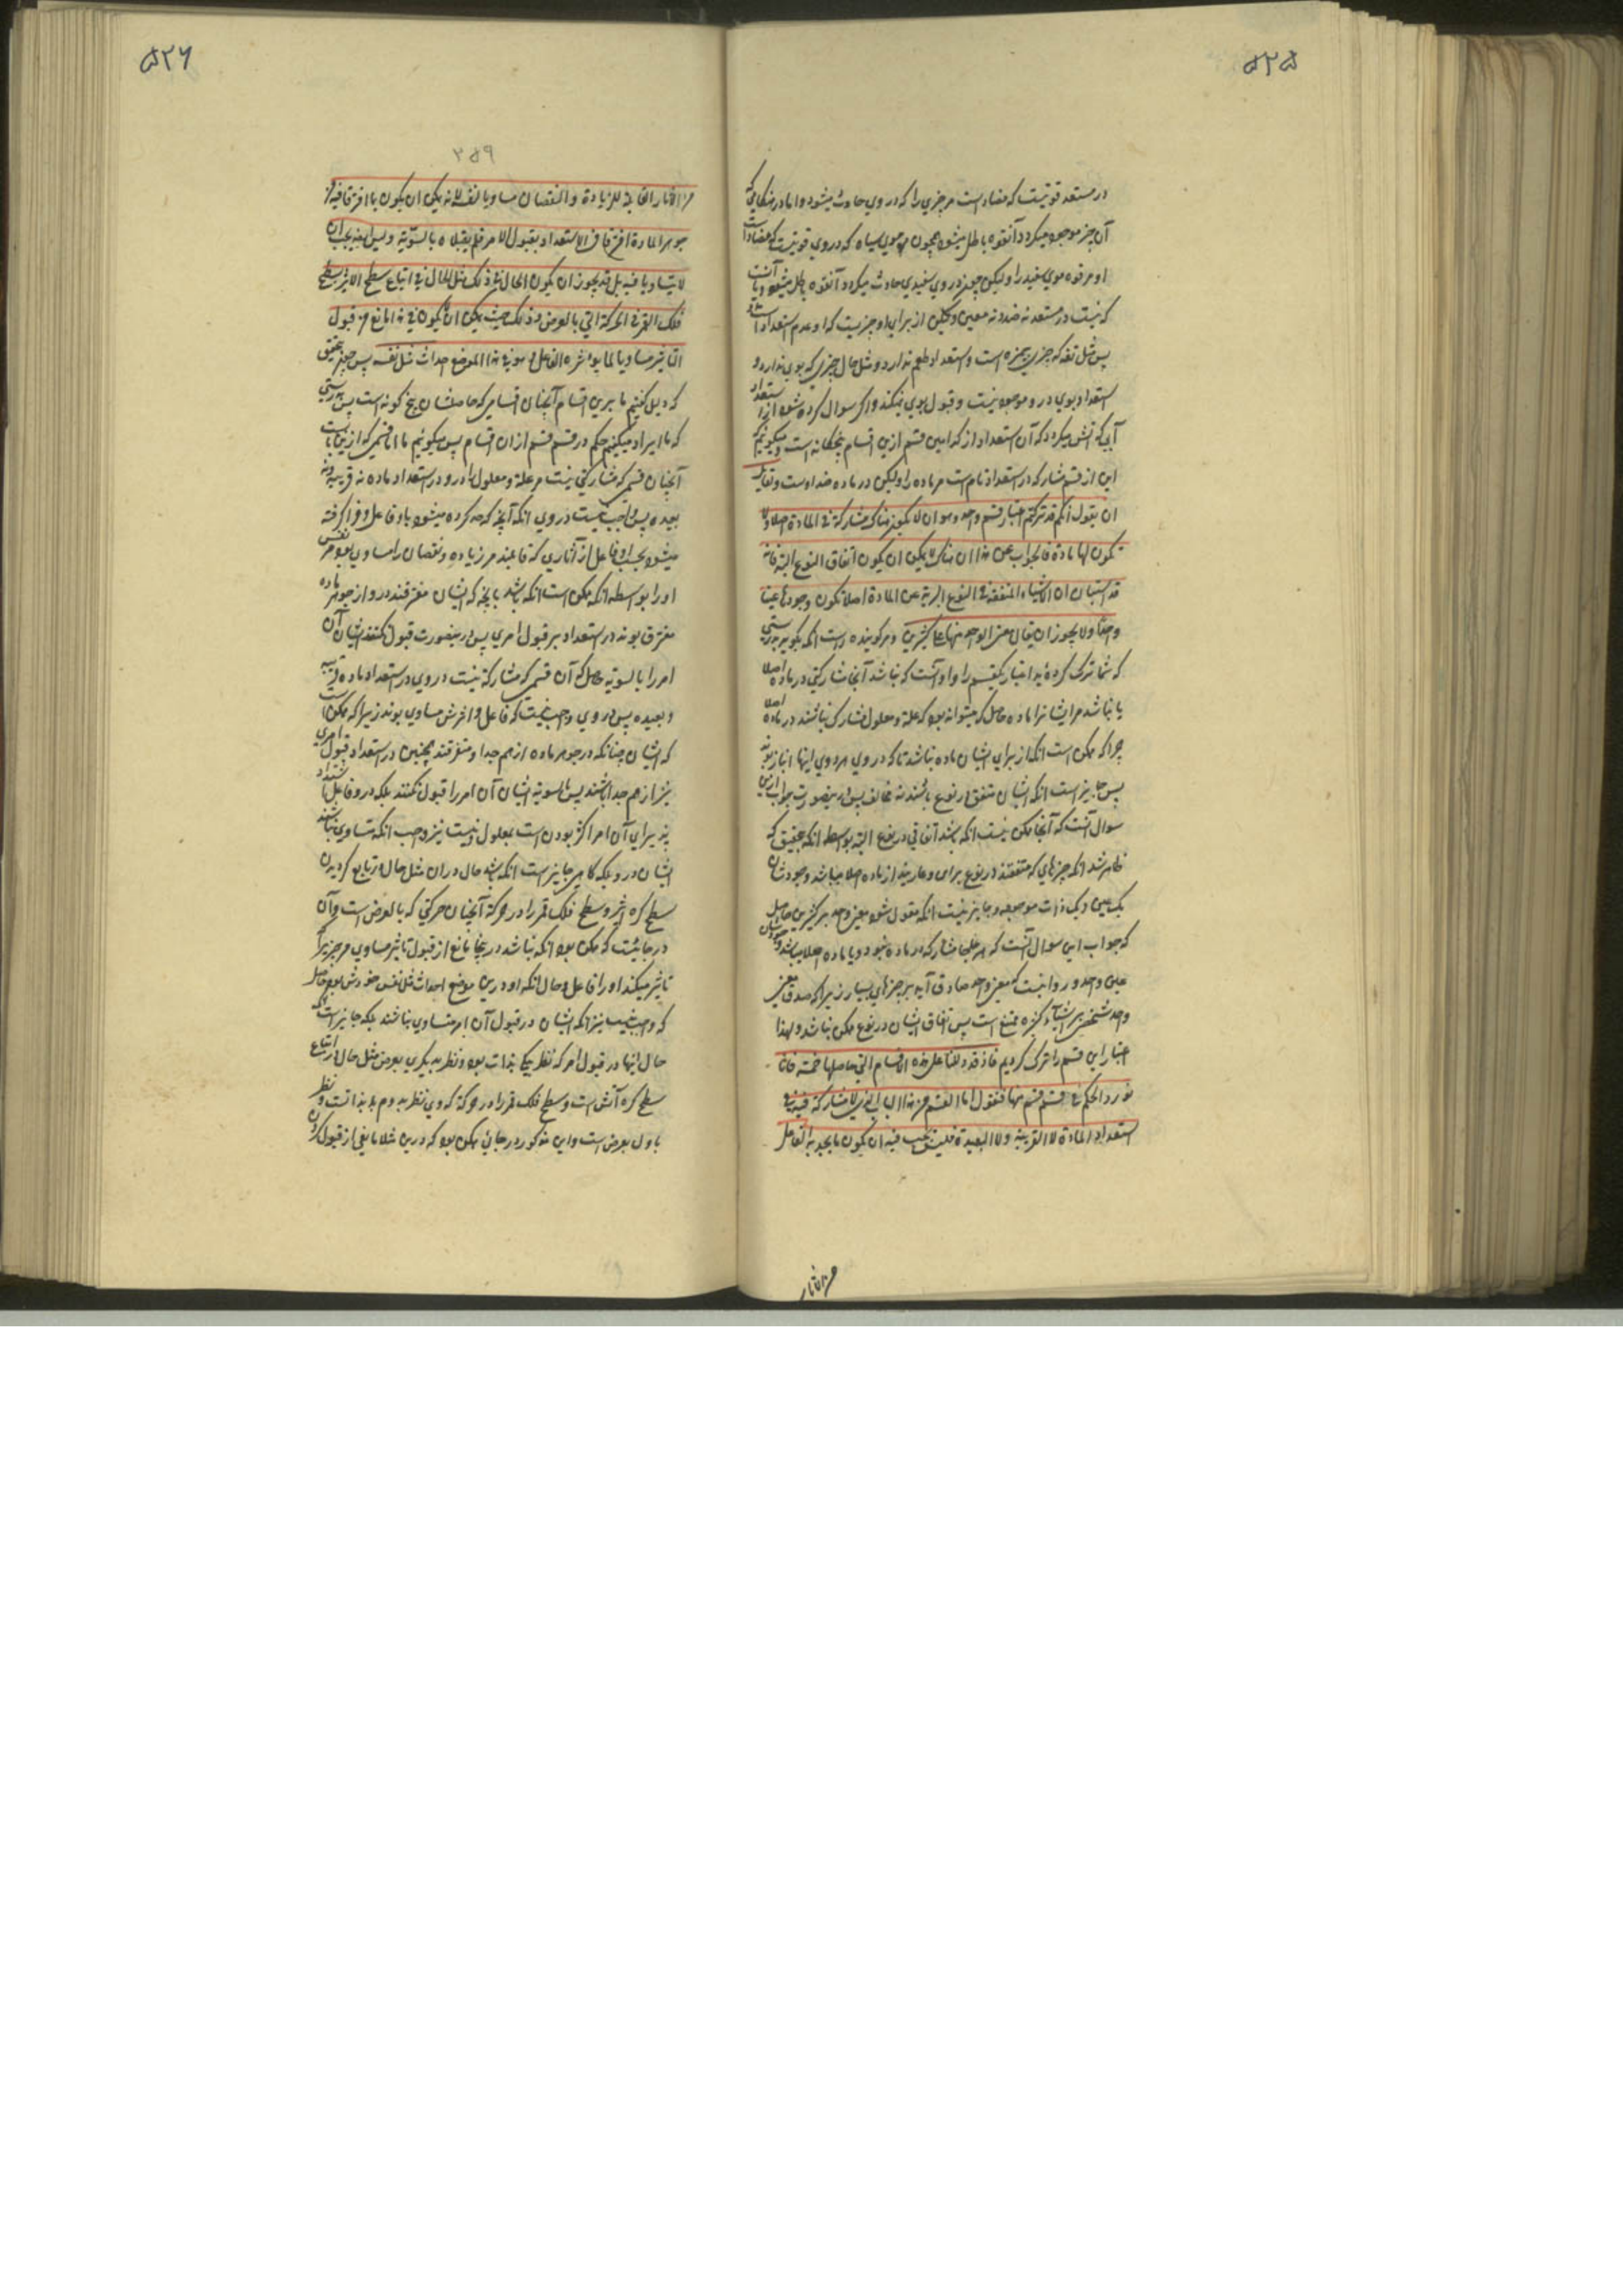 ۵۲۵
در مستعد قوتیست که مضاد است مر چیزی را که در وی حادث میشود و اما در هنگامی که
آن چیز موجود میگردد آنقوه باطل میشود همچون موی سیاه که در وی قوتیست که مضاد است
او مر قوه موی سفید را ولیکن چون در وی سفیدی حادث میگردد آنقوه باطل میشود و یا آنست
که نیست در مستعد نه ضد و نه معین ولیکن از برای او چیزیست که او عدم استعداد است
پس مثل تفه که چیزی بیمزه است و استعداد طعم ندارد و مثل حال چیزی که بوی ندارد و
استعداد بوی در و موجود نیست و قبول بوی نمیکند و اگر سوال کرده شود از استعداد
آبی که آتش میگردد که آن استعداد از کدامین قسم ازین اقسام پنجکانه است میگوئیم که
این از قسم مشارکه در استعداد تام است مر ماده را ولیکن در ماده ضد اوست ولقایل
ان یقول انکم قد ترکتم اعتبار قسم واحد وهو ان لا یکون هناک مشارکة فی المادة اصلا ولا
تکون لها مادة فالجواب عن هذا ان هناک لا یمکن ان یکون اتفاق النوع البتة فانه
قد استبان ان الاشیاء المتفقة فی النوع البریة عن المادة اصلا تکون وجودها عینا
واحدا ولا یجوز ان یقال معنی الواحد منها علی کثیرین و مر گوینده راست انکه بگوید بدرستی
که شما ترک کرده‌ید اعتبار یکقسم را و او آنست که نباشد آنجا مشارکتی در ماده اصلا
یا نباشد مر ایشانرا ماده حاصل که میتواند بود که علة و معلول مشارک نباشند در ماده اصلا
چرا که ممکن است انکه از برای ایشان ماده نباشد تا که در وی هر دوی اینها انباز بوند
پس جایز است انکه ایشان متفق در نوع باشند نه مخالف پس در اینصورت جواب ازین
سوال آنست که آنجا ممکن نیست انکه باشد اتفاقی در نوع البته بواسطه انکه بتحقیق که
ظاهر شد انکه چیزهای که متفقند در نوع بری و عاریند از ماده اصلا میباشد وجودشان
یک عین و یک ذات موجود و جایز نیست انکه مقول شود معنی واحد بر کثیرین حاصل
که جواب این سوال آنست که هر جا مشارکه در ماده نبود و یا ماده اصلا نباشد وجودشان
عین واحد و روا نیست که معنی واحد صادق آید بر چیزهای بسیار زیرا که صدق معنی
واحد شخصی بر اشیاء کثیره ممتنع است پس اتفاق ایشان در نوع ممکن نباشد و لهذا
اعتبار این قسم را ترک کردیم فاذ قد دللنا علی هذه الاقسام التی حاصلها خمسة فانا
نورد الحکم فی قسم قسم منها فنقول اما القسم من هذا الباب الذی لا مشارکة فیه فی
استعداد المادة لا القریبة ولا البعیدة فلیس یجب فیه ان یکون ما یجد به الفاعل
من الاثار
۵۲۶
۲۵۹
من الاثار القابلة للزیادة والنقصان مساویا لنفسه لانه یمکن ان یکون بما افترقا فیه من
جوهر المادة افترقا فی الاستعداد بقبول الامر فلم یقبلاه بالسویة ولیس ایضا یجب ان
لا یتساویا فیه بل قد یجوز ان یکون الحال فی ذلک مثل الحال فی اتباع سطح الاثیر سطح
فلک القمر فی الحرکة التی بالعرض وذلک حیث یمکن ان لا یکون فی هذا مانع من قبول
التاثیر مساویا لما یؤثره الفاعل وهو فی هذا الموضع احداث مثل نفسه پس چون بتحقیق
که دلیل گفتیم ما برین اقسام آنچنان اقسامی که حاصلشان پنج گونه است پس بدرستی
که ما ایراد میکنیم حکم در قسم قسم از ان اقسام پس میگوئیم ما اما قسمی که ازین بابست
آنچنان قسمی که مشارکتی نیست مر علة و معلول را درو در استعداد ماده نه قریبه و نه
بعیده پس واجب نیست در وی انکه آنچه که حد کرده میشود باو فاعل و فرا گرفته
میشود بحسب او فاعل از آثاری که قابلند مر زیاده و نقصان را مساوی بود مر نفس
او را بواسطه انکه ممکن است انکه باشد بانچه که ایشان مفترقند درو از جوهر ماده
مفترق بوند در استعداد بر قبول امری پس درینصورت قبول نکنند ایشان آن
امر را بالسویه حاصل که آن قسمی که مشارکة نیست در وی در استعداد ماده قریبه
و بعیده پس در وی واجب نیست که فاعل و اثرش مساوی بوند زیرا که ممکن است
که ایشان چنانکه در جوهر ماده از هم جدا و متفرقند همچنین در استعداد قبول امری
نیز از هم جدا باشند پس بالسویه ایشان آن امر را قبول نکنند بلکه در فاعل استعداد
پذیرای آن امر اکثر بودن است بمعلول و نیست نیز واجب انکه متساوی نباشند
ایشان درو بلکه گاهی جایز است انکه باشد حال در ان مثل حال در تابع گردیدن
سطح کره اثیر و سطح فلک قمر را در حرکة آنچنان حرکتی که بالعرض است و آن
در جائیست که ممکن بود انکه نباشد در اینجا مانع از قبول تاثیر مساوی مر چیزیرا که
تاثیر میکند او را فاعل و حال انکه او درین موضع احداث مثل نفس خودش بود حاصل
که واجب نیست نیز انکه ایشان در قبول آن امر متساوی نباشند بلکه جایز است که
حال اینها در قبول امر که نظر بیکی بذات بود و نظر بدیگری بعرض مثل حال در اتباع
سطح کره آتش است و سطح فلک قمر را در حرکة که وی نظر بدوم بالذات است و نظر
باول بعرض است و این مذکور در جائی ممکن بود که درین مثلا مانعی از قبول کردن